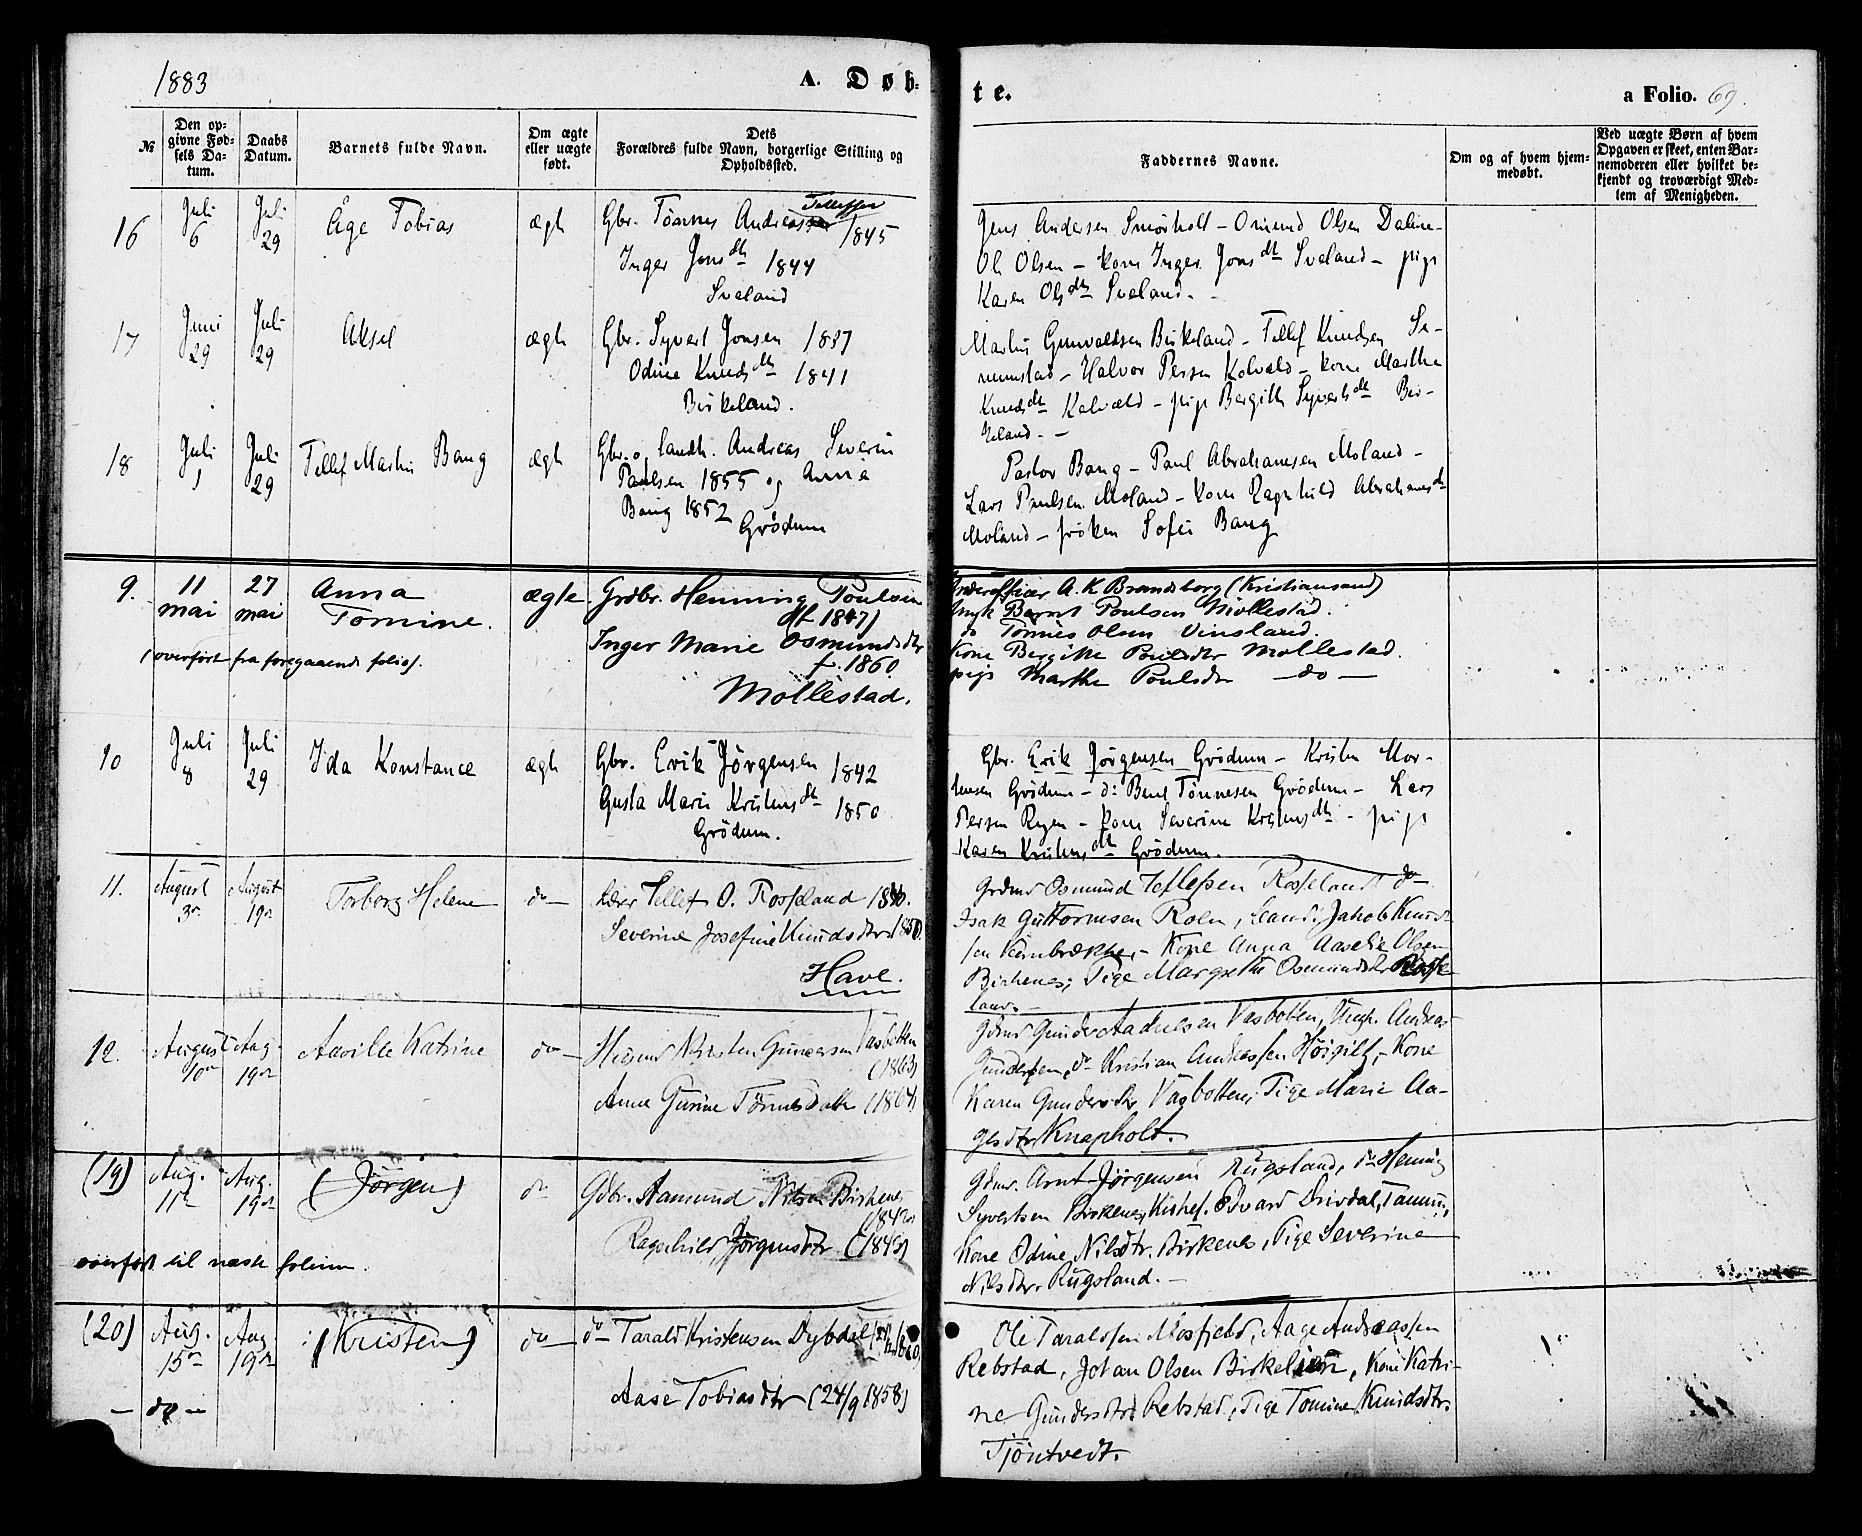 1883
A. Døb-
te.
a Folio. 69.
№
Den op-
givne Fød-
sels Da-
tum.
Daabs
Datum.
Barnets fulde Navn.
Om ægte
eller uægte
født.
Dets
Forældres fulde Navn, borgerlige Stilling og
Opholdssted.
Faddernes Navne.
Om og af hvem hjem-
medøbt.
Ved uægte Børn af hvem
Opgaven er skeet, enten Bar-
nemoderen eller hvilket be-
kjendt og troværdigt Med-
lem af Menigheden.
16
Juli
6
Juli
29
Åge Tobias
ægte
Gbr. Tönnes Andreassen Tellefsen 1845
Inger Jonsdtr 1844
Sveland
Jens Andersen Smörholt - Omund Olsen Daline-
Ole Olsen - kone Inger Jonsdtr Sveland - pige
Karen Olsdtr Sveland. -
17
Juni
29
Juli
29
Aksel
ægte
Gbr. Syvert Jonsen 1837
Odine Knudsdtr 1841
Birkeland.
Martin Gunvaldsen Birkeland - Tellef Knudsen Se-
numstad - Halvor Persen Kalvald - kone Marthe
Knudsdtr Kalvæld - pige Bergitte Syvertsdtr Bir-
keland. -
18
Juli
1
Juli
29
Tellef Martin Bang
ægte
Gbr. o. landh. Andreas Severin
Paulsen 1855 og Anna
Bang 1852
Grödum
Pastor Bang - Paul Abrahamsen Moland -
Lars Paulsen Moland - kone Ragnhild Abrahamsdtr
Moland - frøken Sofie Bang
9.
11
mai
27
mai
Anna
Tomine.
ægte
Grdbr. Henning Poulsen
(f 1847)
Inger Marie Osmundsdtr
f. 1860
Mollestad.
(overført fra foregaaende folio).
Underofficer A. K Brandsborg (Kristiansand)
Ungk Bernt Poulsen Mollestad.
do Tønnes Olsen Vinsland.
Kone Bergitte Poulsdtr Mollestad.
pige Marthe Poulsdtr - do -
10
Juli
8
Juli
29
Ida Konstance
ægte
Gbr. Erik Jörgensen 1842
Gusta Marie Kristensdtr 1850
Grödum.
Gbr. Erik Jörgensen Grödum - Kristen Mor-
tensen Grödum - do: Bent Tönnesen Grödum - Lars
Persen Rygen - kone Severine Kristensdtr - pige
Karen Kristensdtr Grödum.
11.
August
3die
August
19de
Torborg Helene
do -
Lærer Tellef O. Rosseland
Severine Josefine Knudsdtr 1850.
Have.
Grdmd Osmund Tellefsen Rosseland do -
Isak Guttormsen Roln, Jakob Knud-
sen Kirnbrække, - Kone Anna Aaselie Olsen
Birkenes, Pige Margrethe Osmundsdtr Rosse-
land. -
12.
August
10de
Aug.
19de
Aavilde Katrine
do -
Husmd Kristen Gundersen Vasbotten
(1863)
Anne Gurine Tönnesdatter (1864)
Gdmd Gunder Aadnesen Vasbotten, Ungk. Andreas
Gundersen, do Kristian Andreassen Høigilt, - Kone
Karen Gundersdtr Vasbotten, Pige Marie Aa-
gesdtr Knapholt.
(19)
Aug.
11te
Aug.
19de
(Jörgen)
do
Gdbr. Aamund Nilsen Birkenes
(1842)
Ragnhild Jørgensdtr.
overført til næste folium.
Gdmd. Arnt Jørgensen Rugsland, do Hennig
Syvertsen Birkenes, Kirkes. Edvard Drivdal, Tamm.,
Kone Odine Nilsdtr. Birkenes, Pige Severine
Nilsdtr. Rugsland. -
(20)
Aug.
15de
Aug.
19de
(Kristen)
do -
do Tarald Kristensen Dybdal
Aase Tobiasdtr (24/9 1858)
- do -
Ole Taraldsen Mosfjeld, Aage Andreassen
Rebstad, Johan Olsen Birkelien, Kone Katri-
ne Gundersdtr Rebstad, Pige Tomine Knudsdtr.
Tjöntvedt.